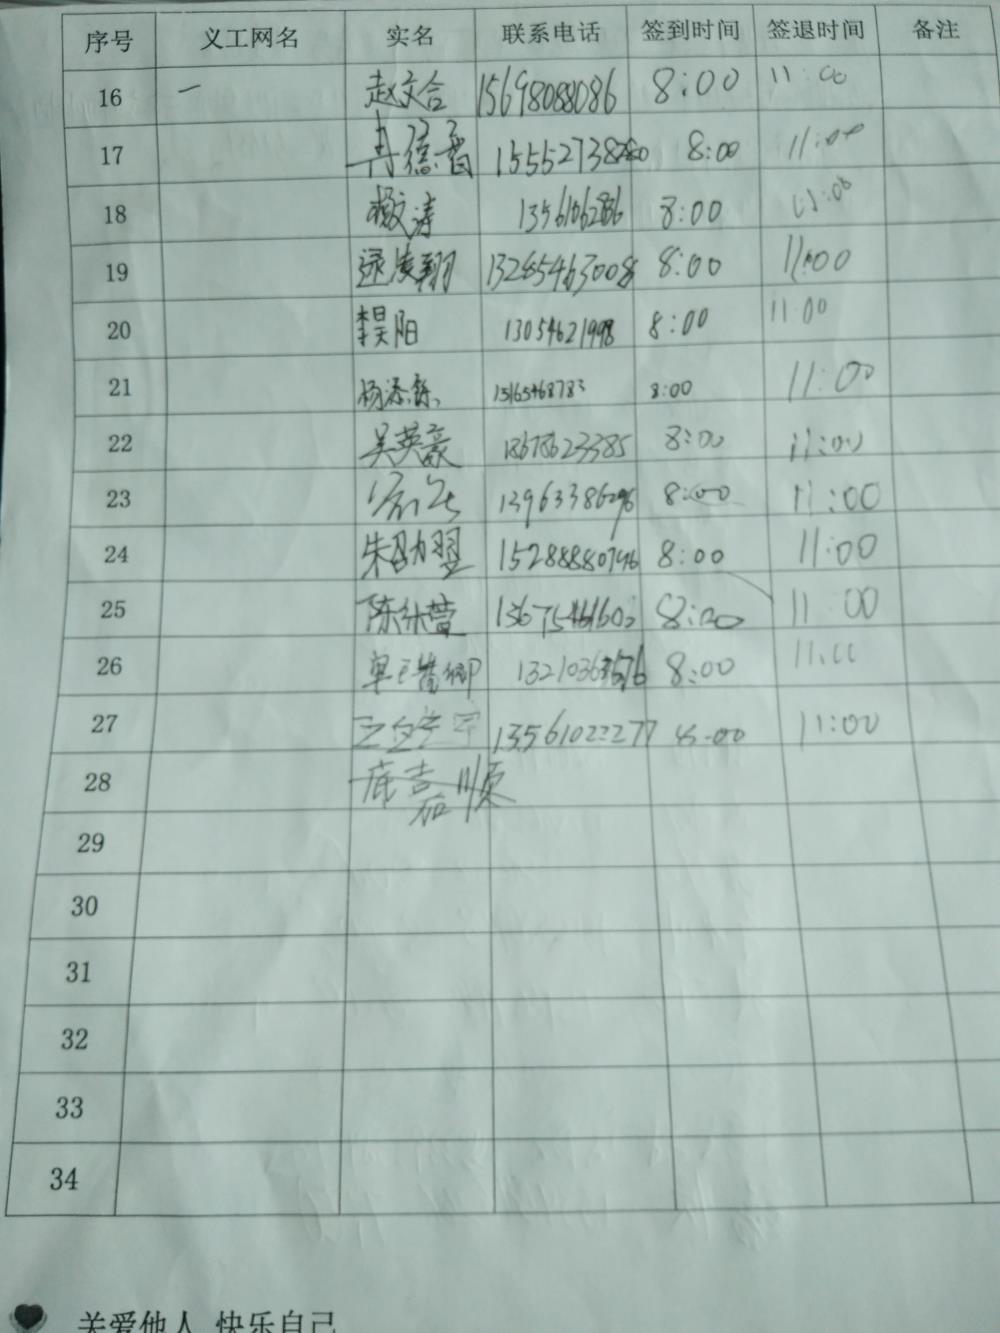 序号 义工网名 实名 联系电话 签到时间 签退时间 备注
16 一 赵文合 15698088086 8:00 11:00
17 冉德香 8:00 11:00
18 8:00 11:00
19 逯凌翔 13285463008 8:00 11:00
20 李昊阳 13054621998 8:00 11:00
21 杨添 15165468783 8:00 11:00
22 吴英豪 18678623385 8:00 11:00
23 13963386296 8:00 11:00
24 朱勋翌 15288880796 8:00 11:00
25 8:00 11:00
26 8:00 11:00
27 13561022277 8:00 11:00
28 席嘉顺
29
30
31
32
33
34
关爱他人 快乐自己